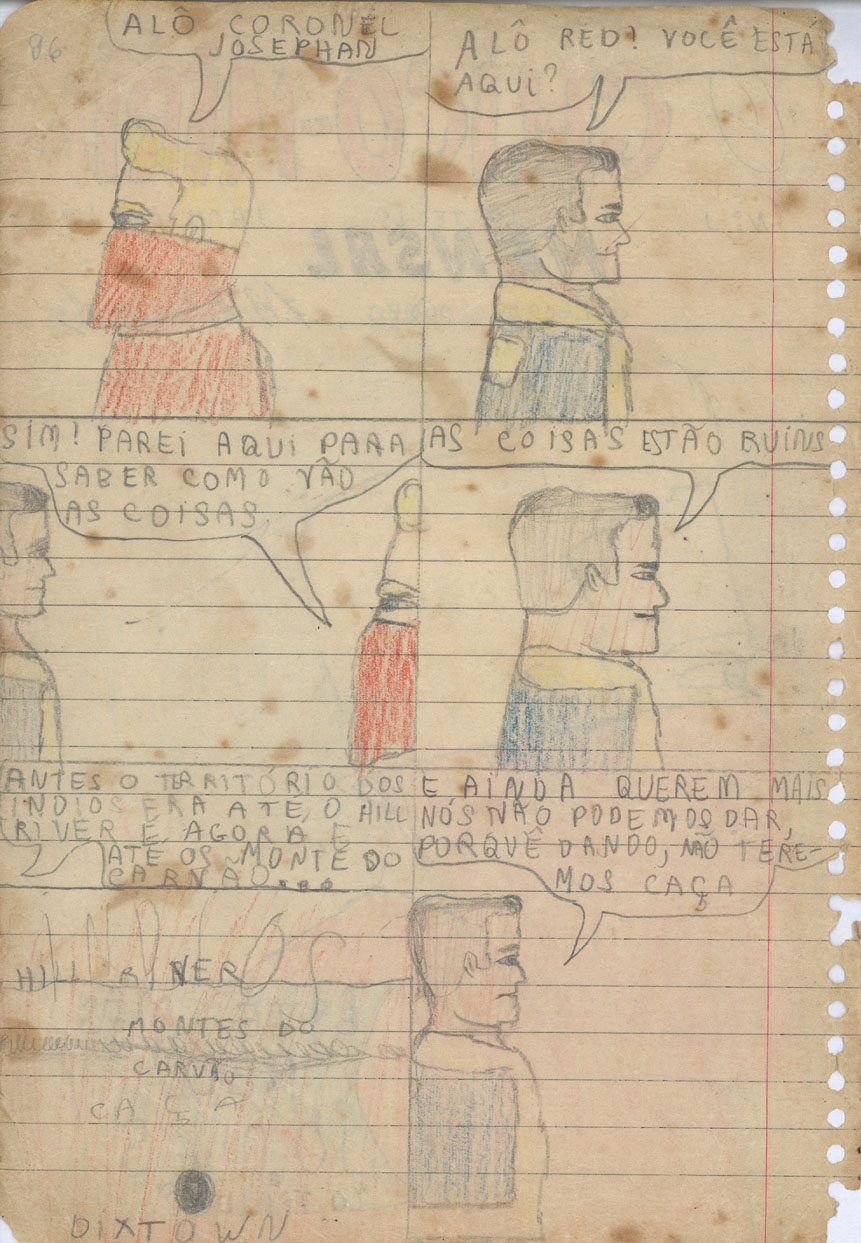 86
ALÔ CORONEL
JOSEPHAN
ALÔ RED! VOCÊ ESTÁ
AQUI?
SIM! PAREI AQUI PARA
SABER COMO VÃO
AS COISAS.
AS COISAS ESTÃO RUINS
ANTES O TERRITÓRIO DOS
INDIOS ERA ATÉ, O HILL
RIVER E AGORA E
ATÉ OS MONTE DO
CARVÃO....
E AINDA QUEREM MAIS
NÓS NÃO PODEMOS DAR,
PORQUÊ DANDO, NÃO TERE-
MOS CAÇA
INDIOS
HILL RIVER
MONTES DO
CARVÃO
CAÇA
DIXTOWN
MENSAL